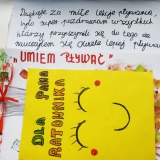 Dziękuję za miłe lekcje pływania
było super pozdrawiam wszystkich
którzy przyczynili się do tego że
nauczyłam się
lepiej pływać
UMIEM PŁYWAĆ
DLA PANA
RATOWNIKA